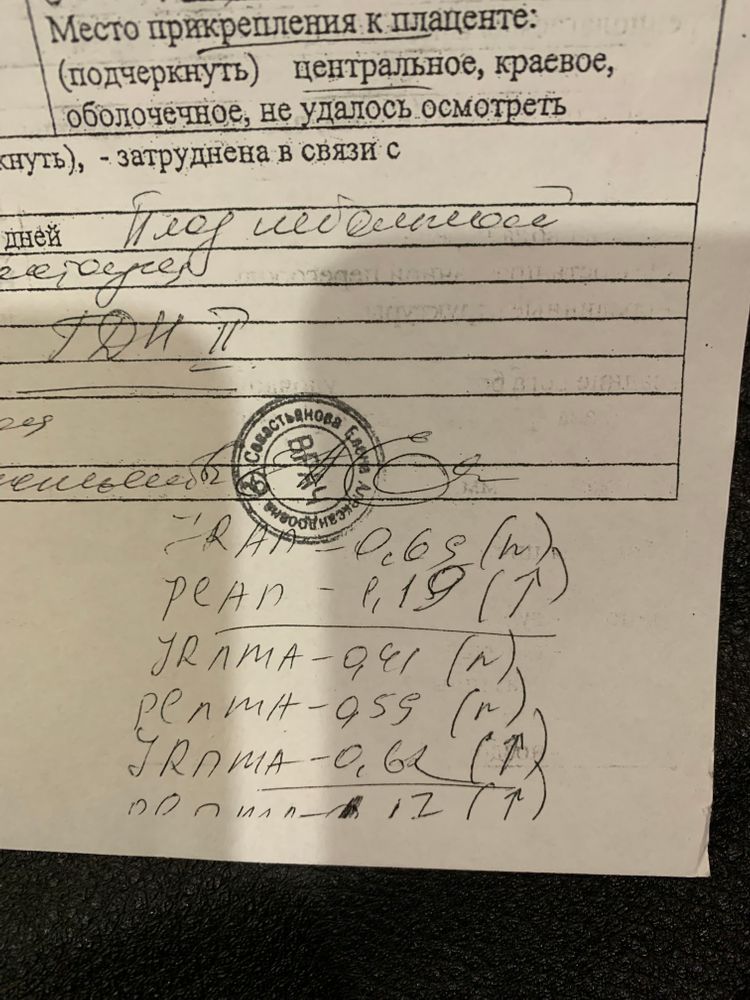 Место прикрепления к плаценте:
(подчеркнуть) центральное, краевое,
оболочечное, не удалось осмотреть
кнуть), - затруднена в связи с
дней Плод небольшой
ГДН II
Севастьянова Елена Александровна
ВРАЧ
JRАП - 0,69 (n)
PCАП - 1,19 (↑)
JRпМА - 0,41 (n)
PCпМА - 0,59 (n)
JRпМА - 0,62 (↑)
17 (↑)